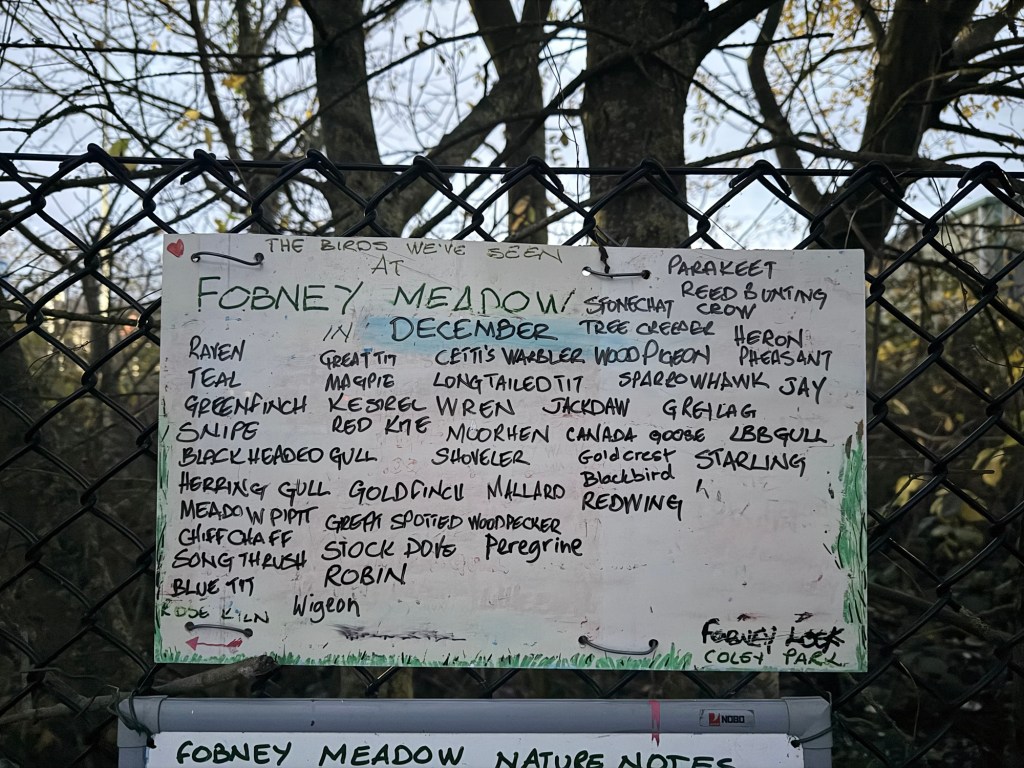 THE BIRDS WE'VE SEEN
AT
FOBNEY MEADOW
IN DECEMBER
RAVEN
TEAL
GREENFINCH
SNIPE
BLACK HEADED GULL
HERRING GULL
MEADOW PIPIT
CHIFFCHAFF
SONG THRUSH
BLUE TIT
ROSE KILN
GREAT TIT
MAGPIE
KESTREL
RED KITE
GOLDFINCH
GREAT SPOTTED WOODPECKER
STOCK DOVE
ROBIN
Wigeon
CETTI'S WARBLER
LONG TAILED TIT
WREN
JACKDAW
MOORHEN
SHOVELER
MALLARD
Peregrine
PARAKEET
REED BUNTING
STONECHAT
CROW
TREE CREEPER
HERON
WOOD PIGEON
PHEASANT
SPARROWHAWK
JAY
GREYLAG
CANADA GOOSE
LBB GULL
Goldcrest
STARLING
Blackbird
REDWING
FOBNEY LOCK
COLEY PARK
NOBO
FOBNEY MEADOW NATURE NOTES